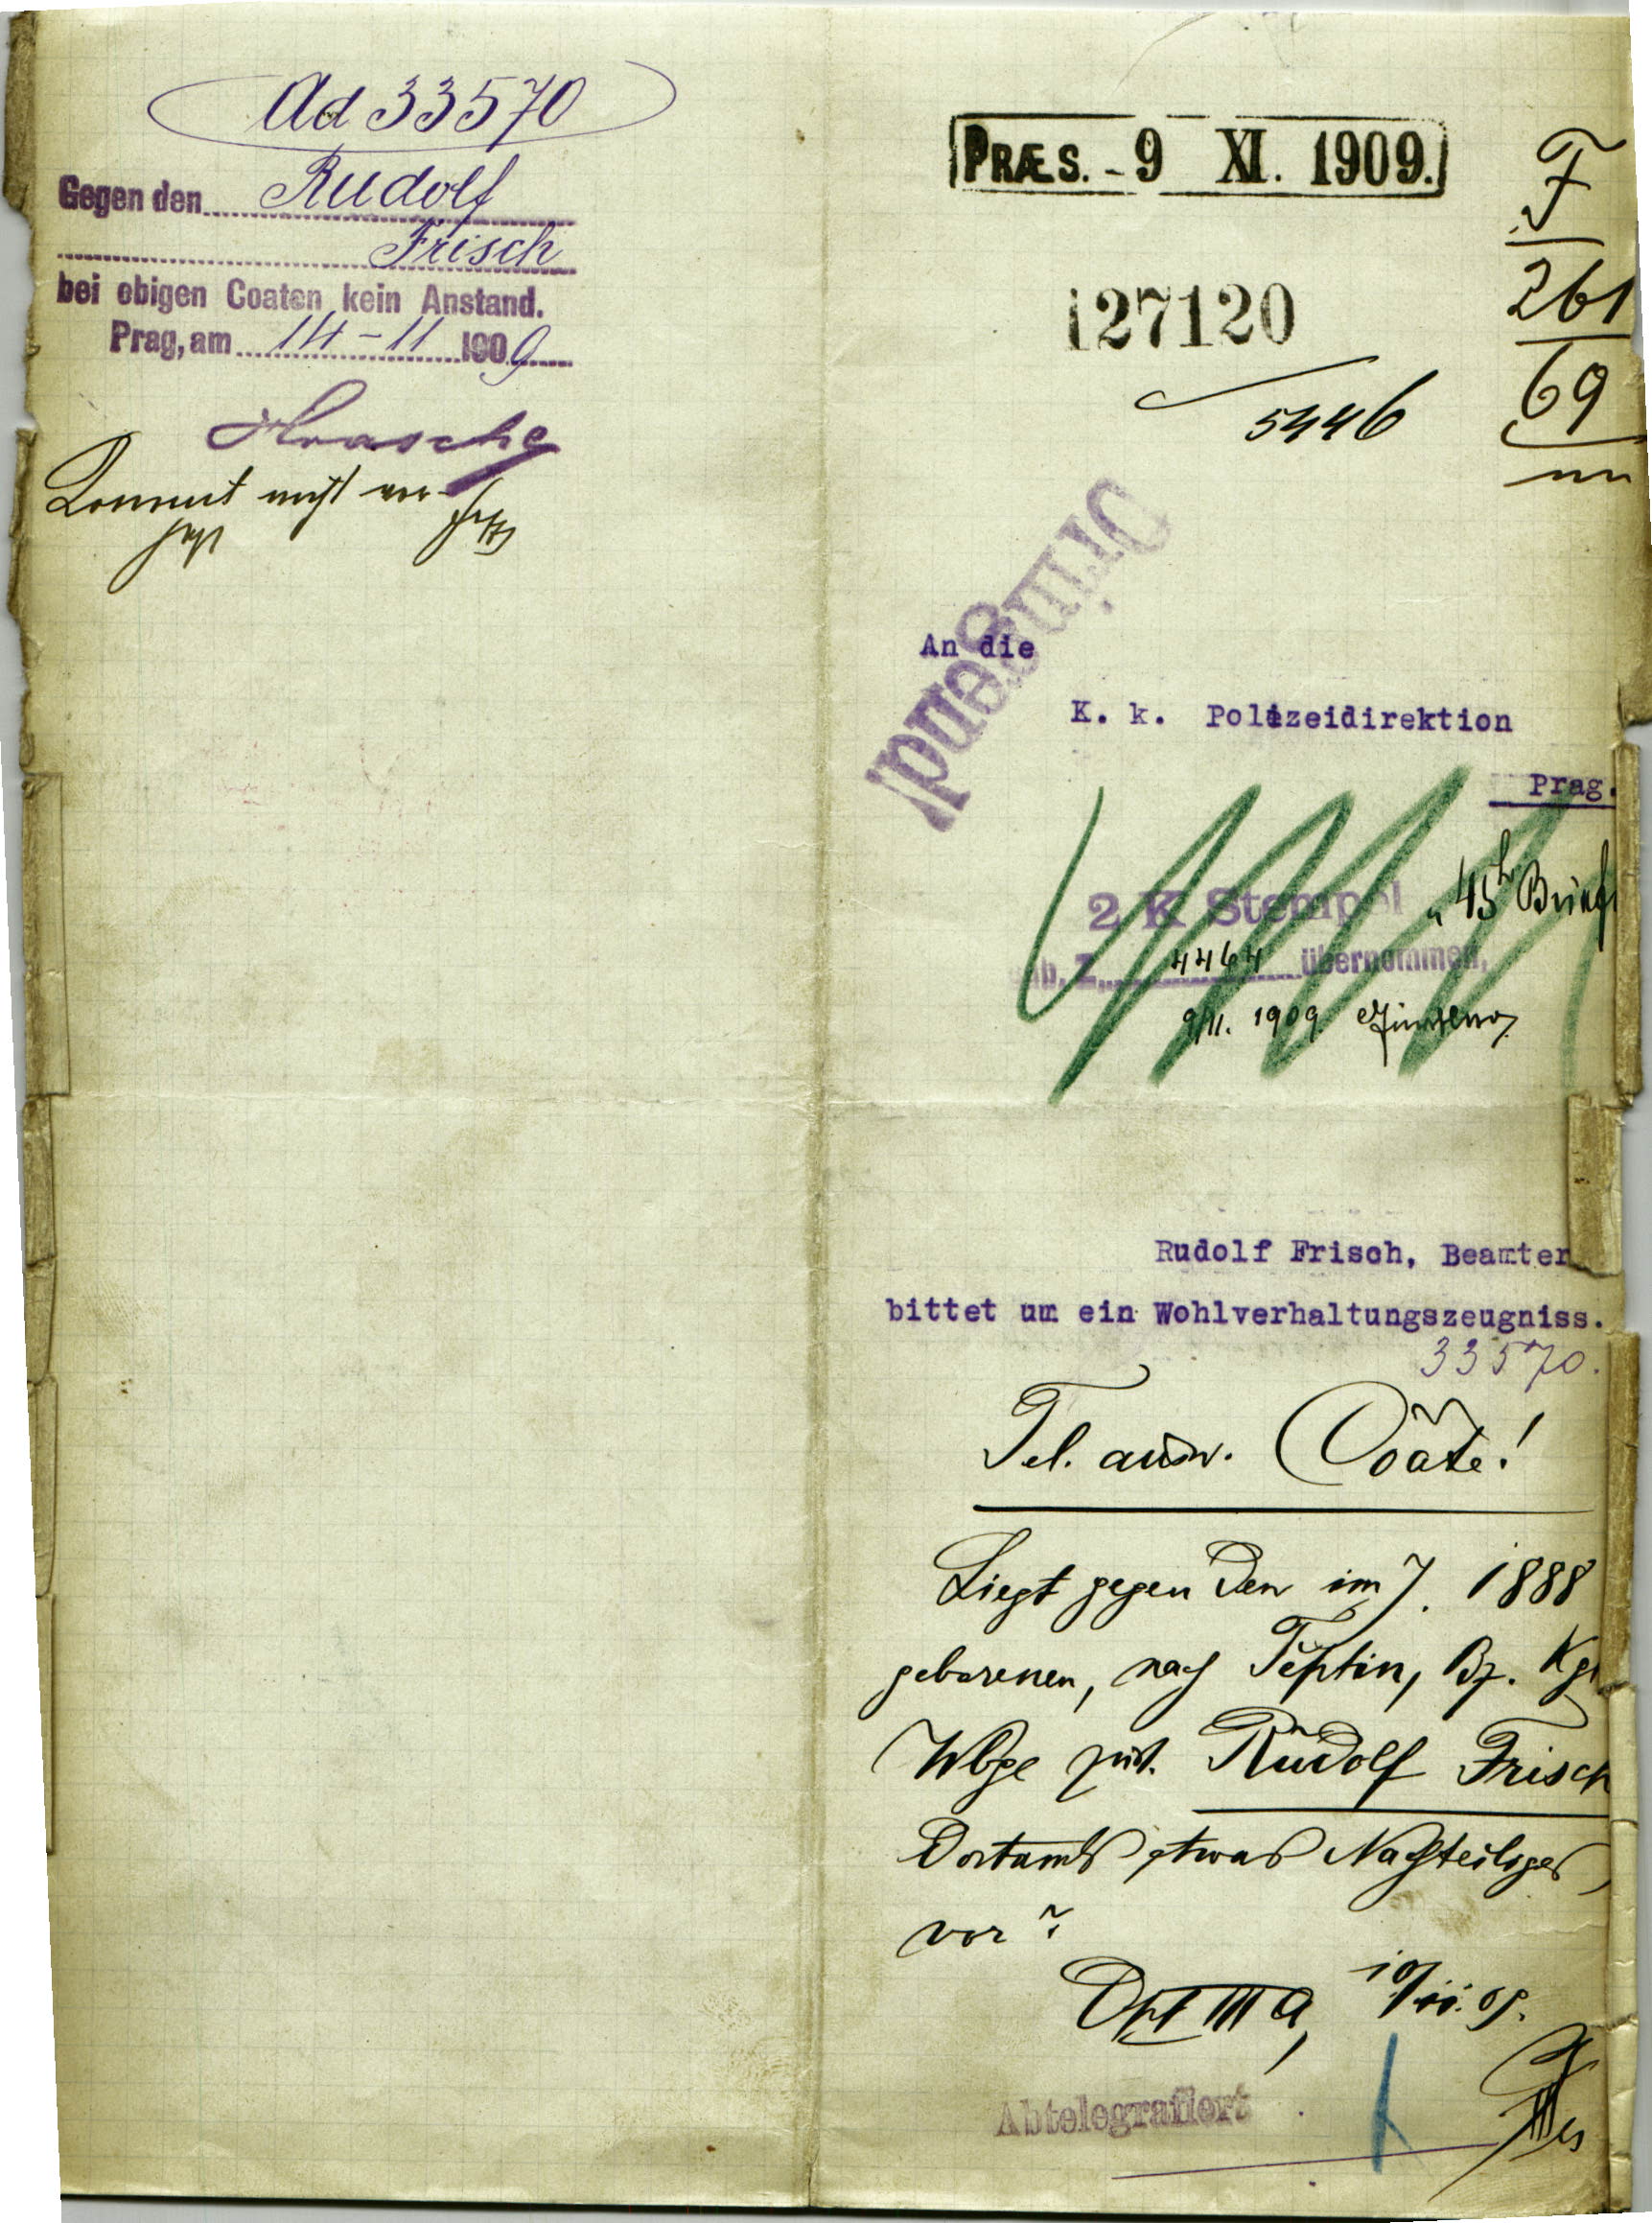 Ad 33570
Gegen den Rudolf
Frisch
bei obigen Coaten kein Anstand.
Prag, am 14-11 1909
Kommt nicht vor
PRÆS. - 9 XI. 1909.
F
261
69
127120
5446
Dringend!
An die
K. k. Polizeidirektion
Prag.
2 K Stempel
45 h
4464 übernommen,
9/11. 1909.
Rudolf Frisch, Beamter
bittet um ein Wohlverhaltungszeugniss.
33570.
Tel. ausw. Coate!
Liegt gegen den im J. 1888
geborenen, nach Teptin, Bz. Kgl
Wbge zust. Rudolf Frisch
Dortamts etwas Nachteiliges
vor?
Dpt III a, 10/11. 09.
Abtelegrafiert